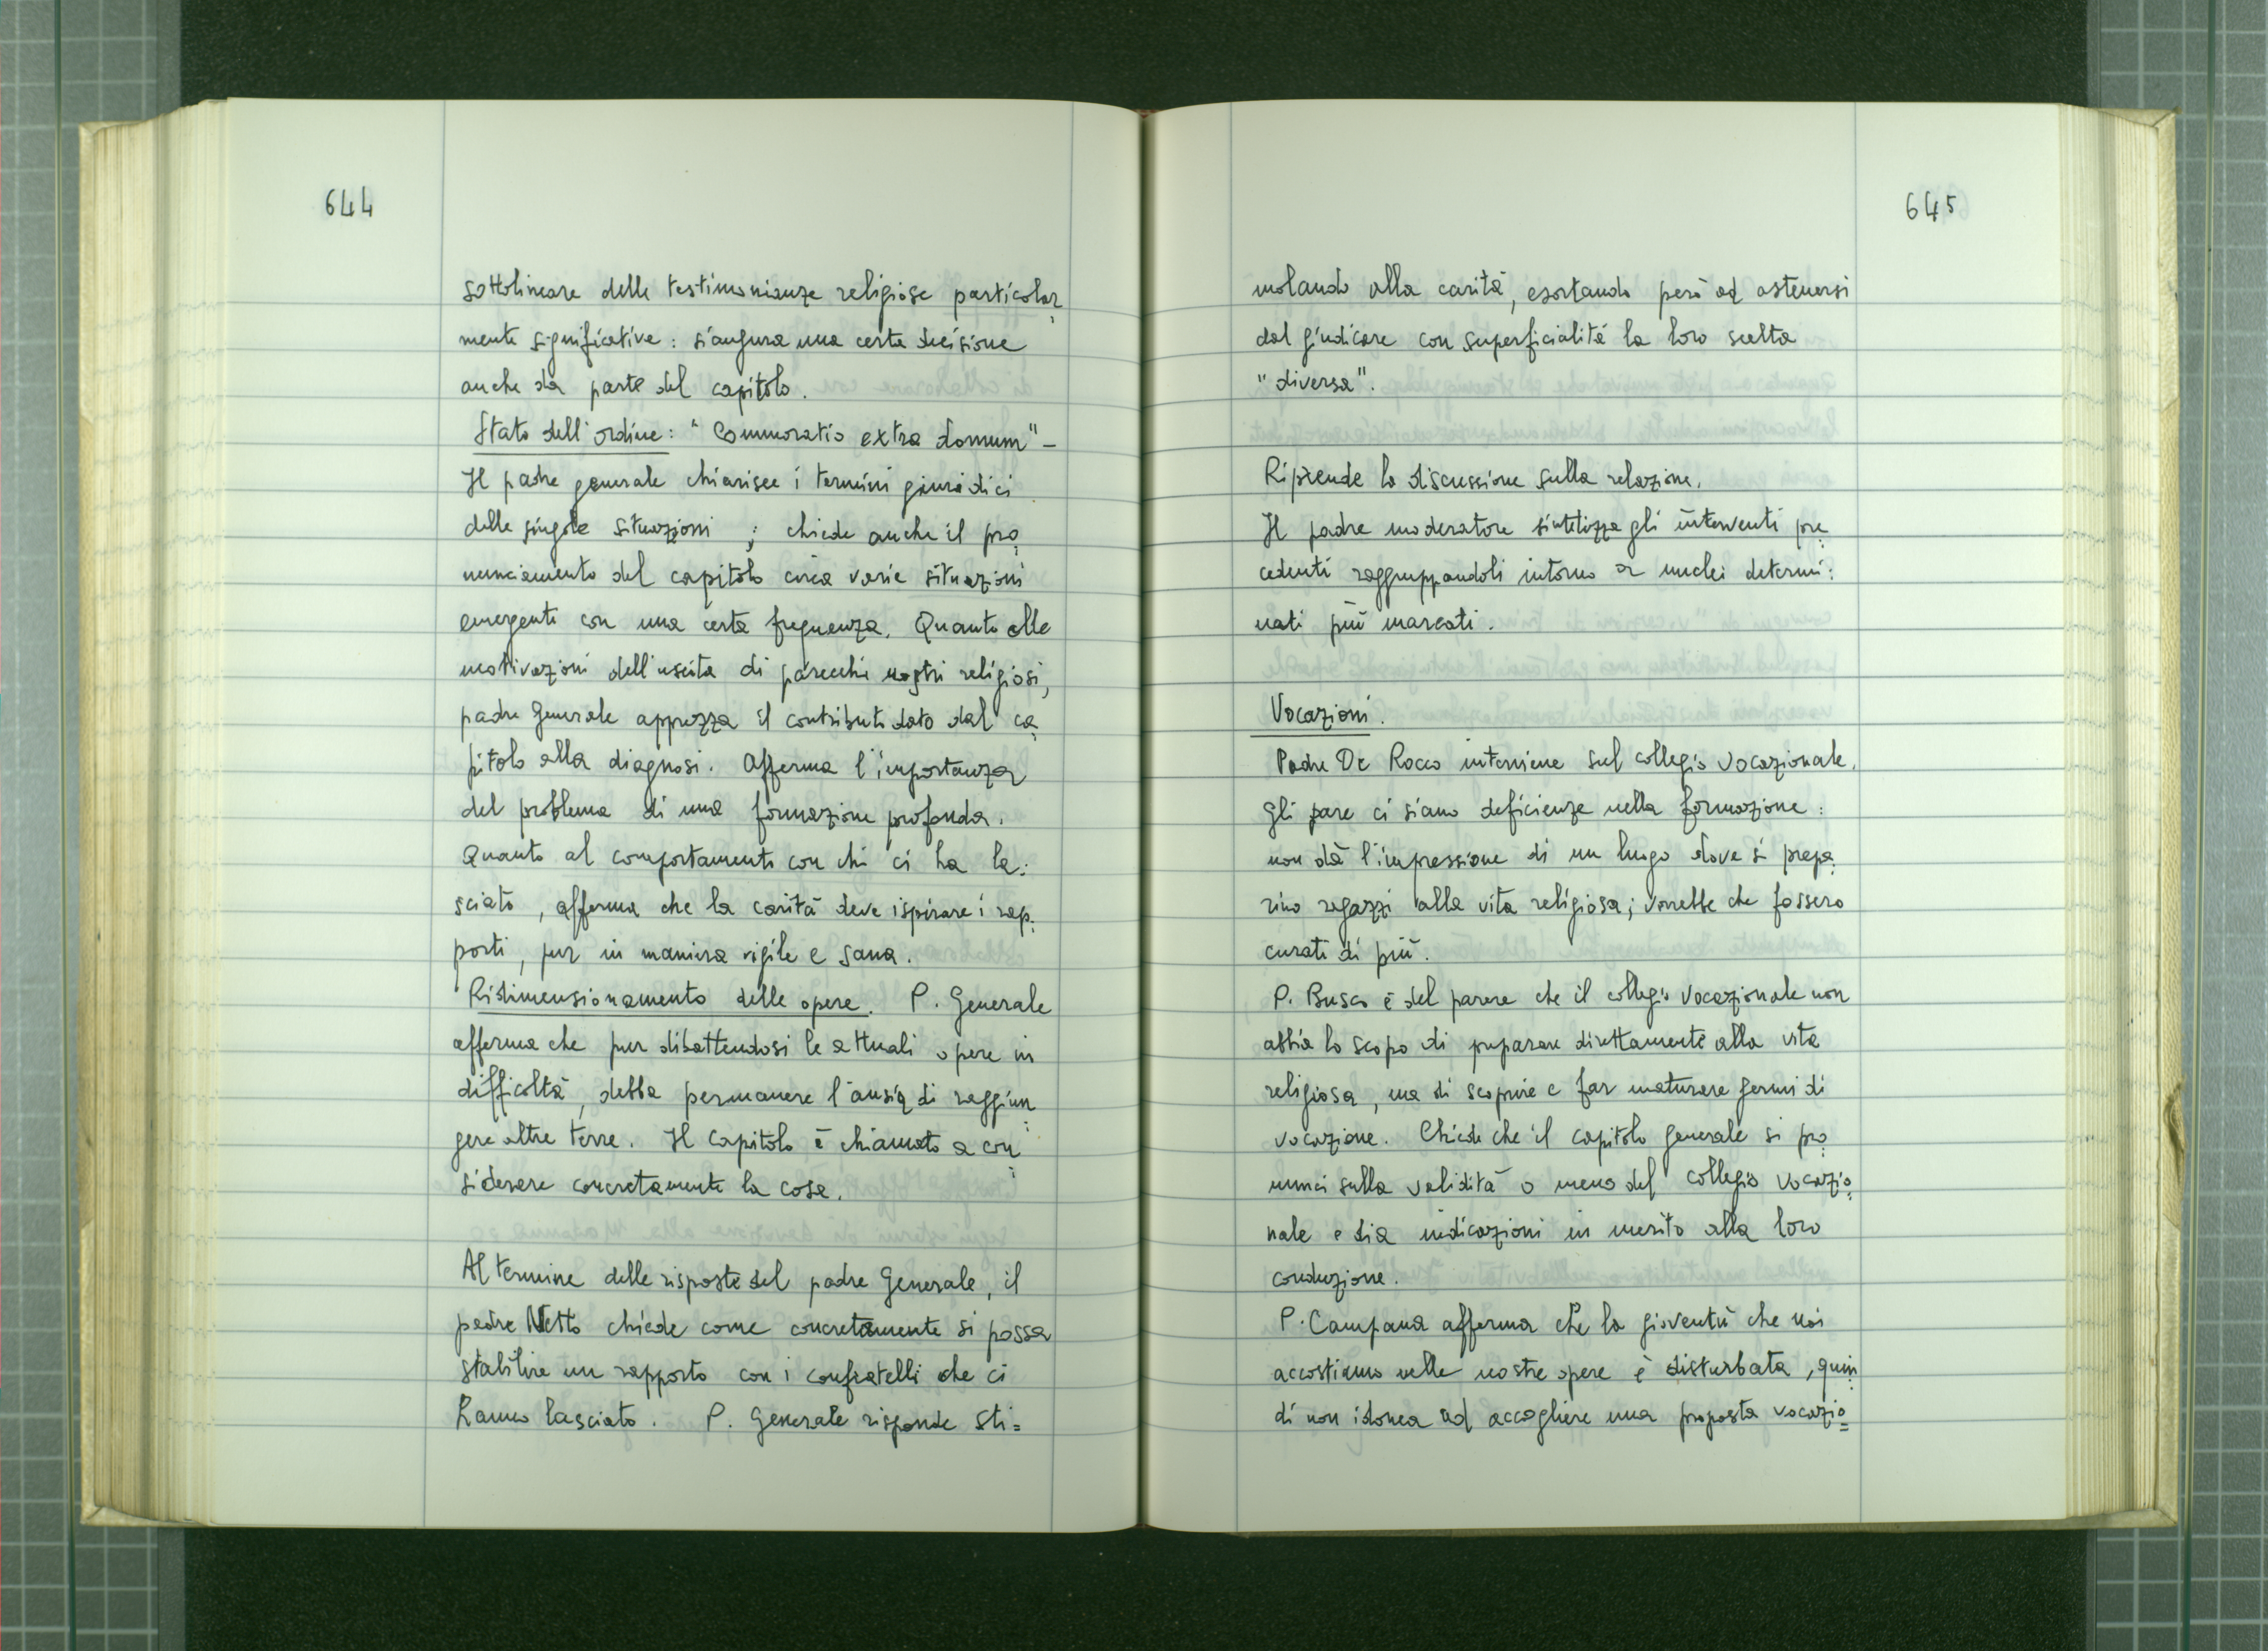 644
sottolineare delle testimonianze religiose particolar=
mente significative: si augura una certa decisione
anche da parte del capitolo.
Stato dell'ordine: "Commoratio extra domum" -
Il padre generale chiarisce i termini giuridici
delle singole situazioni; chiede anche il pro=
nunciamento del capitolo circa varie situazioni
emergenti con una certa frequenza. Quanto alle
motivazioni dell'uscita di parecchi nostri religiosi,
padre Generale apprezza il contributo dato dal ca=
pitolo alla diagnosi. Afferma l'importanza
del problema di una formazione profonda.
Quanto al comportamento con chi ci ha la=
sciato, afferma che la carità deve ispirare i rap=
porti, pur in maniera vigile e sana.
Ridimensionamento delle opere. P. Generale
afferma che pur dibattendosi le attuali opere in
difficoltà, debba permanere l'ansia di raggiun=
gere altre terre. Il Capitolo è chiamato a con=
siderare concretamente la cosa.
Al termine delle risposte del padre Generale, il
padre Netto chiede come concretamente si possa
stabilire un rapporto con i confratelli che ci
hanno lasciato. P. Generale risponde sti=
645
molando alla carità, esortando però ad astenersi
dal giudicare con superficialità la loro scelta
"diversa".
Riprende la discussione sulla relazione.
Il padre moderatore sintetizza gli interventi pre=
cedenti raggruppandoli intorno a nuclei determi=
nati più marcati.
Vocazioni.
Padre De Rocco interviene sul collegio vocazionale.
Gli pare ci siano deficienze nella formazione:
non dà l'impressione di un luogo dove si prepa=
rino ragazzi alla vita religiosa; vorrebbe che fossero
curati di più.
P. Busco è del parere che il collegio vocazionale non
abbia lo scopo di preparare direttamente alla vita
religiosa, ma di scoprire e far maturare germi di
vocazione. Chiede che il capitolo generale si pro=
nunci sulla validità o meno del collegio vocazio=
nale e dia indicazioni in merito alla loro
conduzione.
P. Campana afferma che la gioventù che noi
accostiamo nelle nostre opere è disturbata, quin=
di non idonea ad accogliere una proposta vocazio=